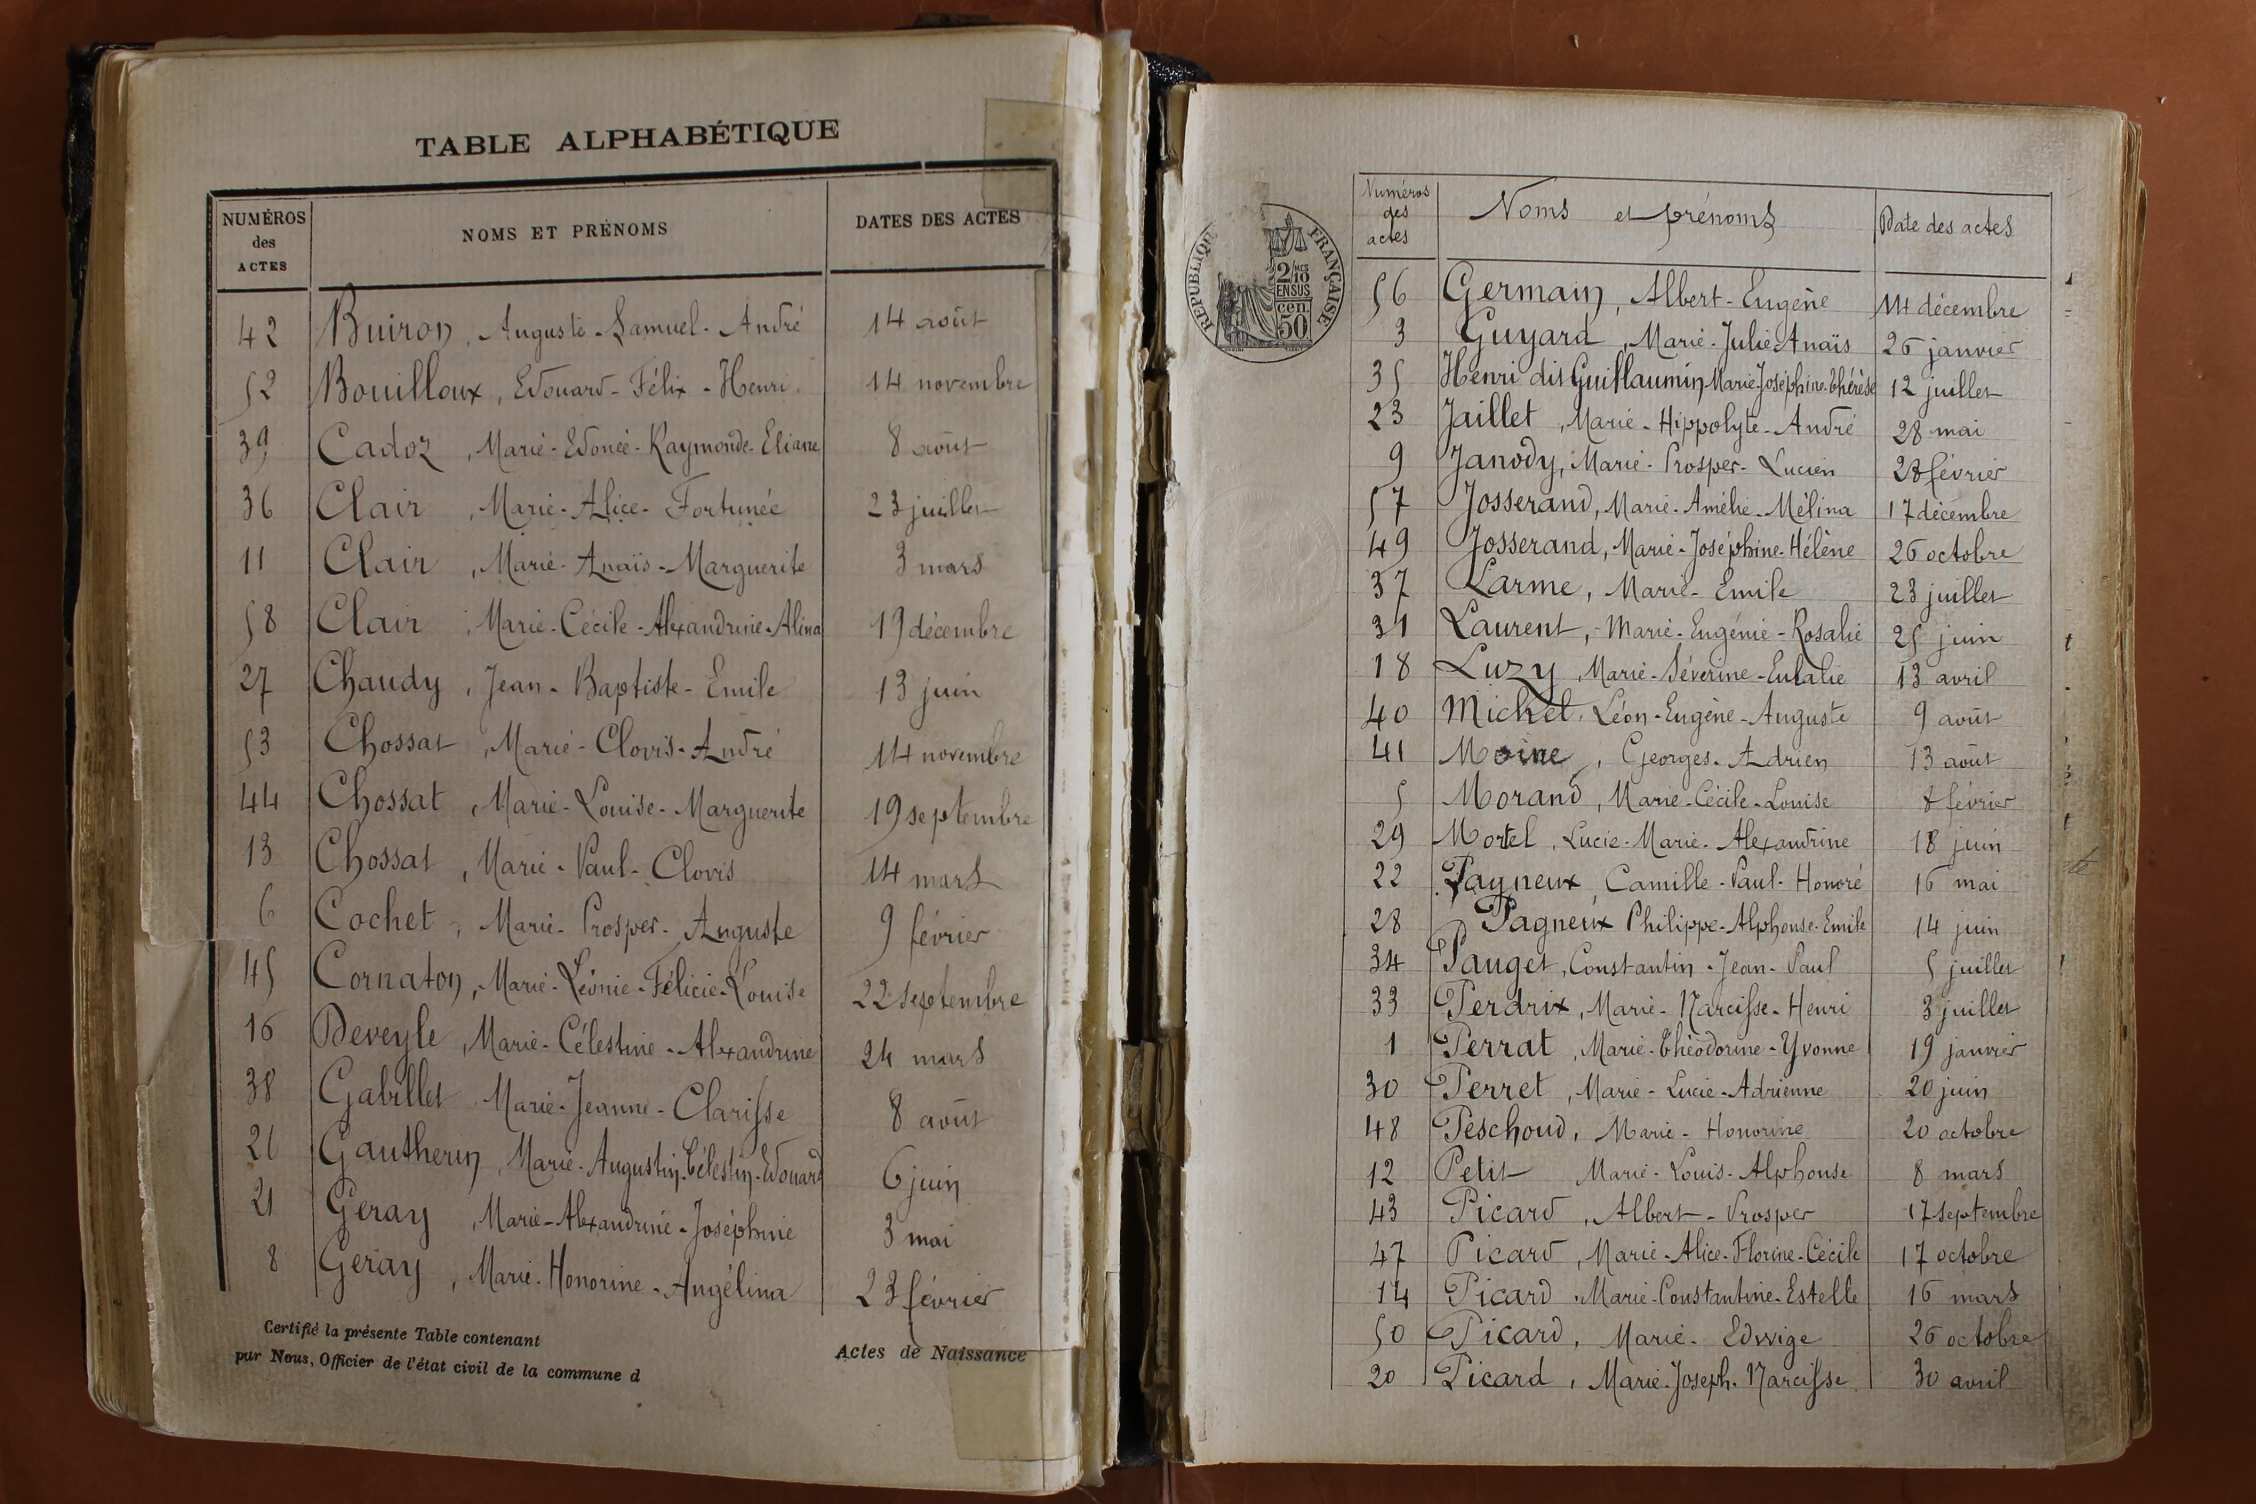 TABLE ALPHABÉTIQUE
NUMÉROS des ACTES NOMS ET PRÉNOMS DATES DES ACTES
42 Buiron, Auguste-Samuel-André 14 août
52 Bouilloux, Edouard-Félix-Henri 14 novembre
39 Cadoz, Marie-Edonée-Raymonde-Eliane 8 août
36 Clair, Marie-Alice-Fortunée 23 juillet
11 Clair, Marie-Anaïs-Marguerite 3 mars
58 Clair, Marie-Cécile-Alexandrine-Alina 19 décembre
27 Chaudy, Jean-Baptiste-Emile 13 juin
53 Chossat, Marie-Clovis-André 14 novembre
44 Chossat, Marie-Louise-Marguerite 19 septembre
13 Chossat, Marie-Paul-Clovis 14 mars
6 Cochet, Marie-Prosper-Auguste 9 février
45 Cornaton, Marie-Léonie-Félicie-Louise 22 septembre
16 Deveyle, Marie-Célestine-Alexandrine 24 mars
38 Gabillet Marie-Jeanne-Clarisse 8 août
26 Gautherin, Marie-Augustin-Célestin-Edouard 6 juin
21 Geray, Marie-Alexandrine-Joséphine 3 mai
8 Geray, Marie-Honorine-Angélina 23 février
Certifié la présente Table contenant Actes de Naissance
par Nous, Officier de l'état civil de la commune d
RÉPUBLIQUE FRANÇAISE
2/10 EN SUS
50 cen.
Numéros des actes Noms et prénoms Date des actes
56 Germain, Albert-Eugène 14 décembre
3 Guyard, Marie-Julie-Anaïs 26 janvier
35 Henri dit Guillaumin, Marie-Joséphine-Thérèse 12 juillet
23 Jaillet, Marie-Hippolyte-André 28 mai
9 Janody, Marie-Prosper-Lucien 28 février
57 Josserand, Marie-Amélie-Mélina 17 décembre
49 Josserand, Marie-Joséphine-Hélène 26 octobre
37 Larme, Marie-Emile 23 juillet
31 Laurent, Marie-Eugénie-Rosalie 25 juin
18 Luzy, Marie-Séverine-Eulalie 13 avril
40 Michel, Léon-Eugène-Auguste 9 août
41 Moine, Georges-Adrien 13 août
5 Morand, Marie-Cécile-Louise 8 février
29 Mortel, Lucie-Marie-Alexandrine 18 juin
22 Pagneux Camille-Paul-Honoré 16 mai
28 Pagneux Philippe-Alphonse-Emile 14 juin
34 Pauget, Constantin-Jean-Paul 5 juillet
33 Perdrix, Marie-Narcisse-Henri 3 juillet
1 Perrat, Marie-Théodorine-Yvonne 19 janvier
30 Perret, Marie-Lucie-Adrienne 20 juin
48 Peschoud, Marie-Honorine 20 octobre
12 Petit Marie-Louis-Alphonse 8 mars
43 Picard, Albert-Prosper 17 septembre
47 Picard, Marie-Alice-Florine-Cécile 17 octobre
14 Picard, Marie-Constantine-Estelle 16 mars
50 Picard, Marie-Edwige 26 octobre
20 Picard, Marie-Joseph-Narcisse 30 avril